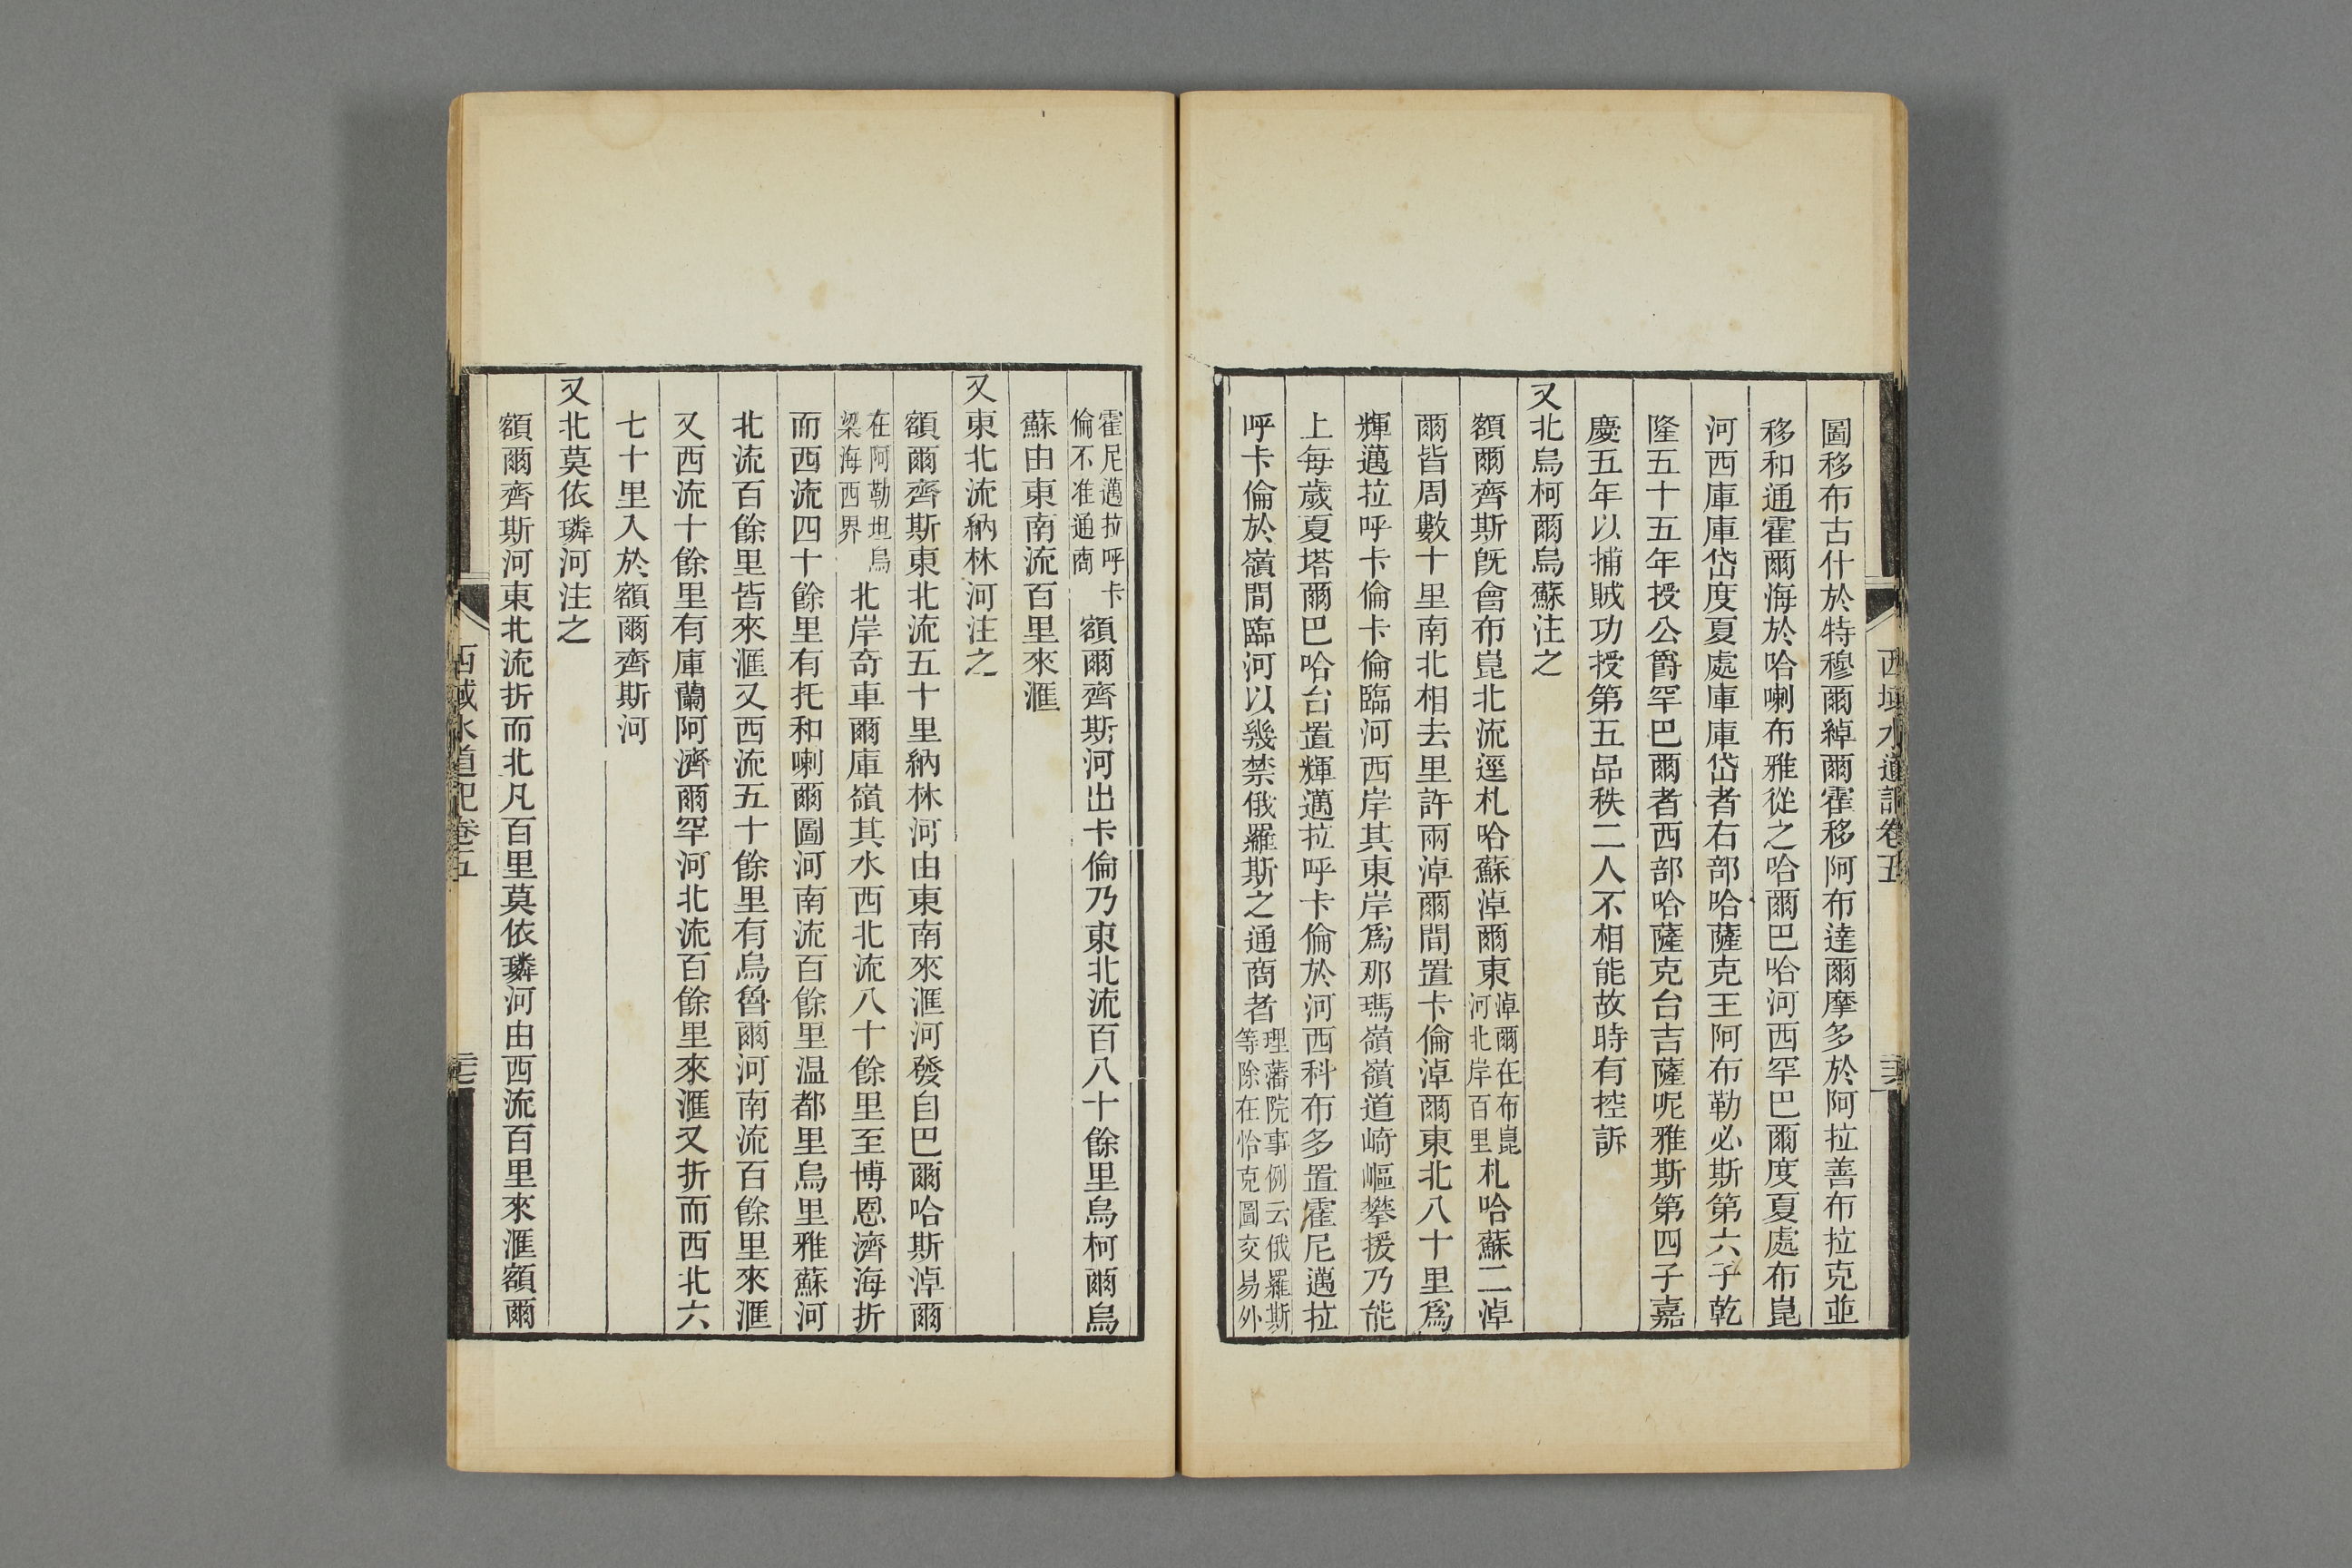 圖移布古什於特穆爾綽爾霍移阿布達爾摩多於阿拉善布拉克並
移和通霍爾海於哈喇布雅從之哈爾巴哈河西罕巴爾度夏處布崑
河西庫庫岱度夏處庫庫岱者右部哈薩克王阿布勒必斯第六子乾
隆五十五年授公爵罕巴爾者西部哈薩克台吉薩呢雅斯第四子嘉
慶五年以捕賊功授第五品秩二人不相能故時有控訴
又北烏柯爾烏蘇注之
額爾齊斯旣會布崑北流逕札哈蘇淖爾東淖爾在布崑河北岸百里札哈蘇二淖
爾皆周數十里南北相去里許兩淖爾間置卡倫淖爾東北八十里爲
輝邁拉呼卡倫卡倫臨河西岸其東岸爲那瑪嶺嶺道崎嶇攀援乃能
上每歲夏塔爾巴哈台置輝邁拉呼卡倫於河西科布多置霍尼邁拉
呼卡倫於嶺間臨河以幾禁俄羅斯之通商者理藩院事例云俄羅斯等除在恰克圖交易外
西域水道記卷五
霍尼邁拉呼卡倫不准通商額爾齊斯河出卡倫乃東北流百八十餘里烏柯爾烏
蘇由東南流百里來滙
又東北流納林河注之
額爾齊斯東北流五十里納林河由東南來滙河發自巴爾哈斯淖爾
在阿勒坦烏梁海西界北岸奇車爾庫嶺其水西北流八十餘里至博恩濟海折
而西流四十餘里有托和喇爾圖河南流百餘里温都里烏里雅蘇河
北流百餘里皆來滙又西流五十餘里有烏魯爾河南流百餘里來滙
又西流十餘里有庫蘭阿濟爾罕河北流百餘里來滙又折而西北六
七十里入於額爾齊斯河
又北莫依璘河注之
額爾齊斯河東北流折而北凡百里莫依璘河由西流百里來滙額爾
西域水道記卷五